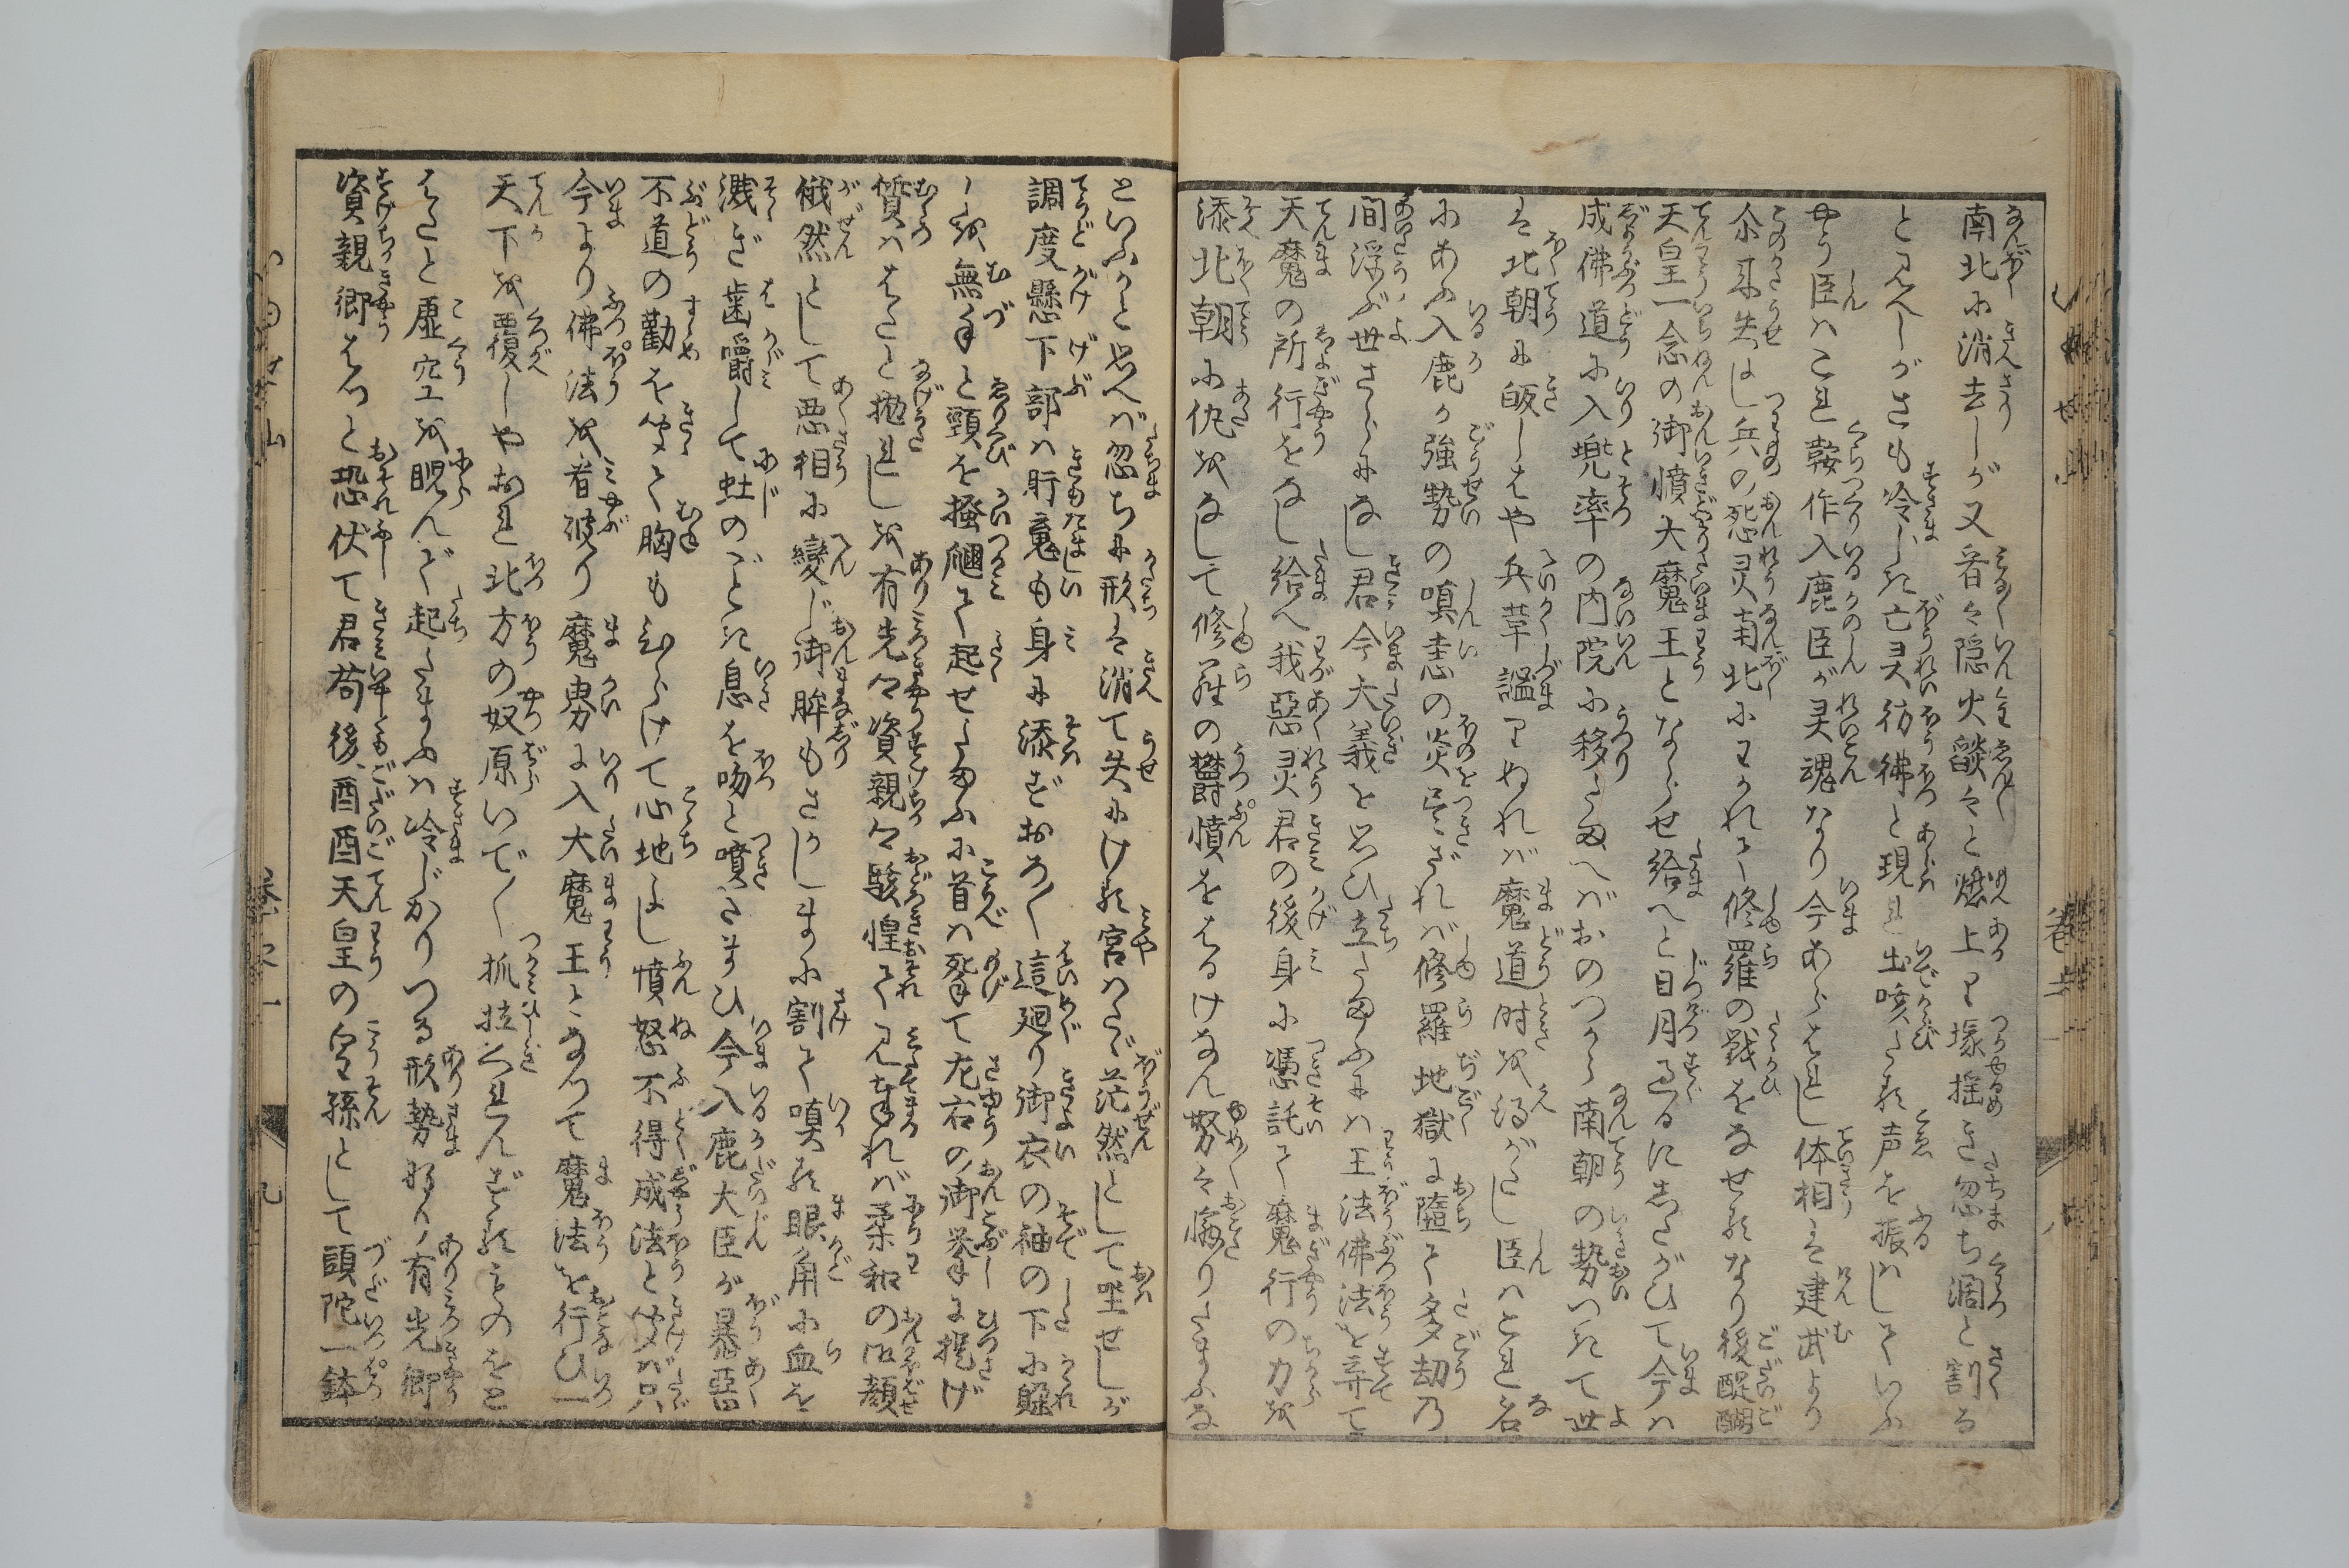 南北に消去しが又看々隠火燄々と燃上り塚揺き忽ち濶と割る
と見へしがさも冷じき亡灵彷彿と現れ出喚たる声を振はしていふ
やう臣はこれ鞍作入鹿臣が灵魂なり今あらはれし体相は建武より
尓来失はし兵の怨灵南北にわかれて修羅の戦をなせるなり後醍醐
天皇一念の御憤大魔王とならせ給へと日月過るにしたがひて今は
成佛道に入兜率の内院に移たまへばおのづから南朝の勢つきて世
は北朝に皈しはや兵革謐りぬれば魔道時を得がたし臣はこれ名
にあふ入鹿が強勢の嗔恚の炎尽ざれば修羅地獄に墮て多劫乃
間浮ぶ世さらになし君今大義を思ひ立たまふには王法佛法を弃て
天魔の所行をなし給へ我惡灵君の後身に憑託て魔行の力を
添北朝に仇をなして修羅の鬱憤をはるけなん努々懈りたまふな
といふかと思へば忽ちに形は消て失にける宮はただ茫然として坐せしが
調度懸下部は肝魂も身に添ずおろ〳〵這廻り御衣の袖の下に躱
しを無手と頸を掻爴て起せたまふに首は捥て左右の御拳に提げ
質ははたと抛れしを有光々資親々駭惶て見奉れば柔和の御顔
俄然として惡相に變じ御眸もさかしまに割て嗔る眼角に血を
濺ぎ歯嚼して虹のごとき息を吻と噴たまひ今入鹿大臣が暴惡
不道の勸を聞て胸もひらけて心地よし憤怒不得成法と聞ば只
今より佛法を看破り魔界に入大魔王となつて魔法を行ひ一
天下を覆しやおれ北方の奴原いで〳〵抓拉くれんずるものをと
はたと虚空を睨んで起たまふは冷じかりつる形勢なり有光卿
資親卿はつと恐伏て君苟後醍醐天皇の皇孫として頭陀一鉢